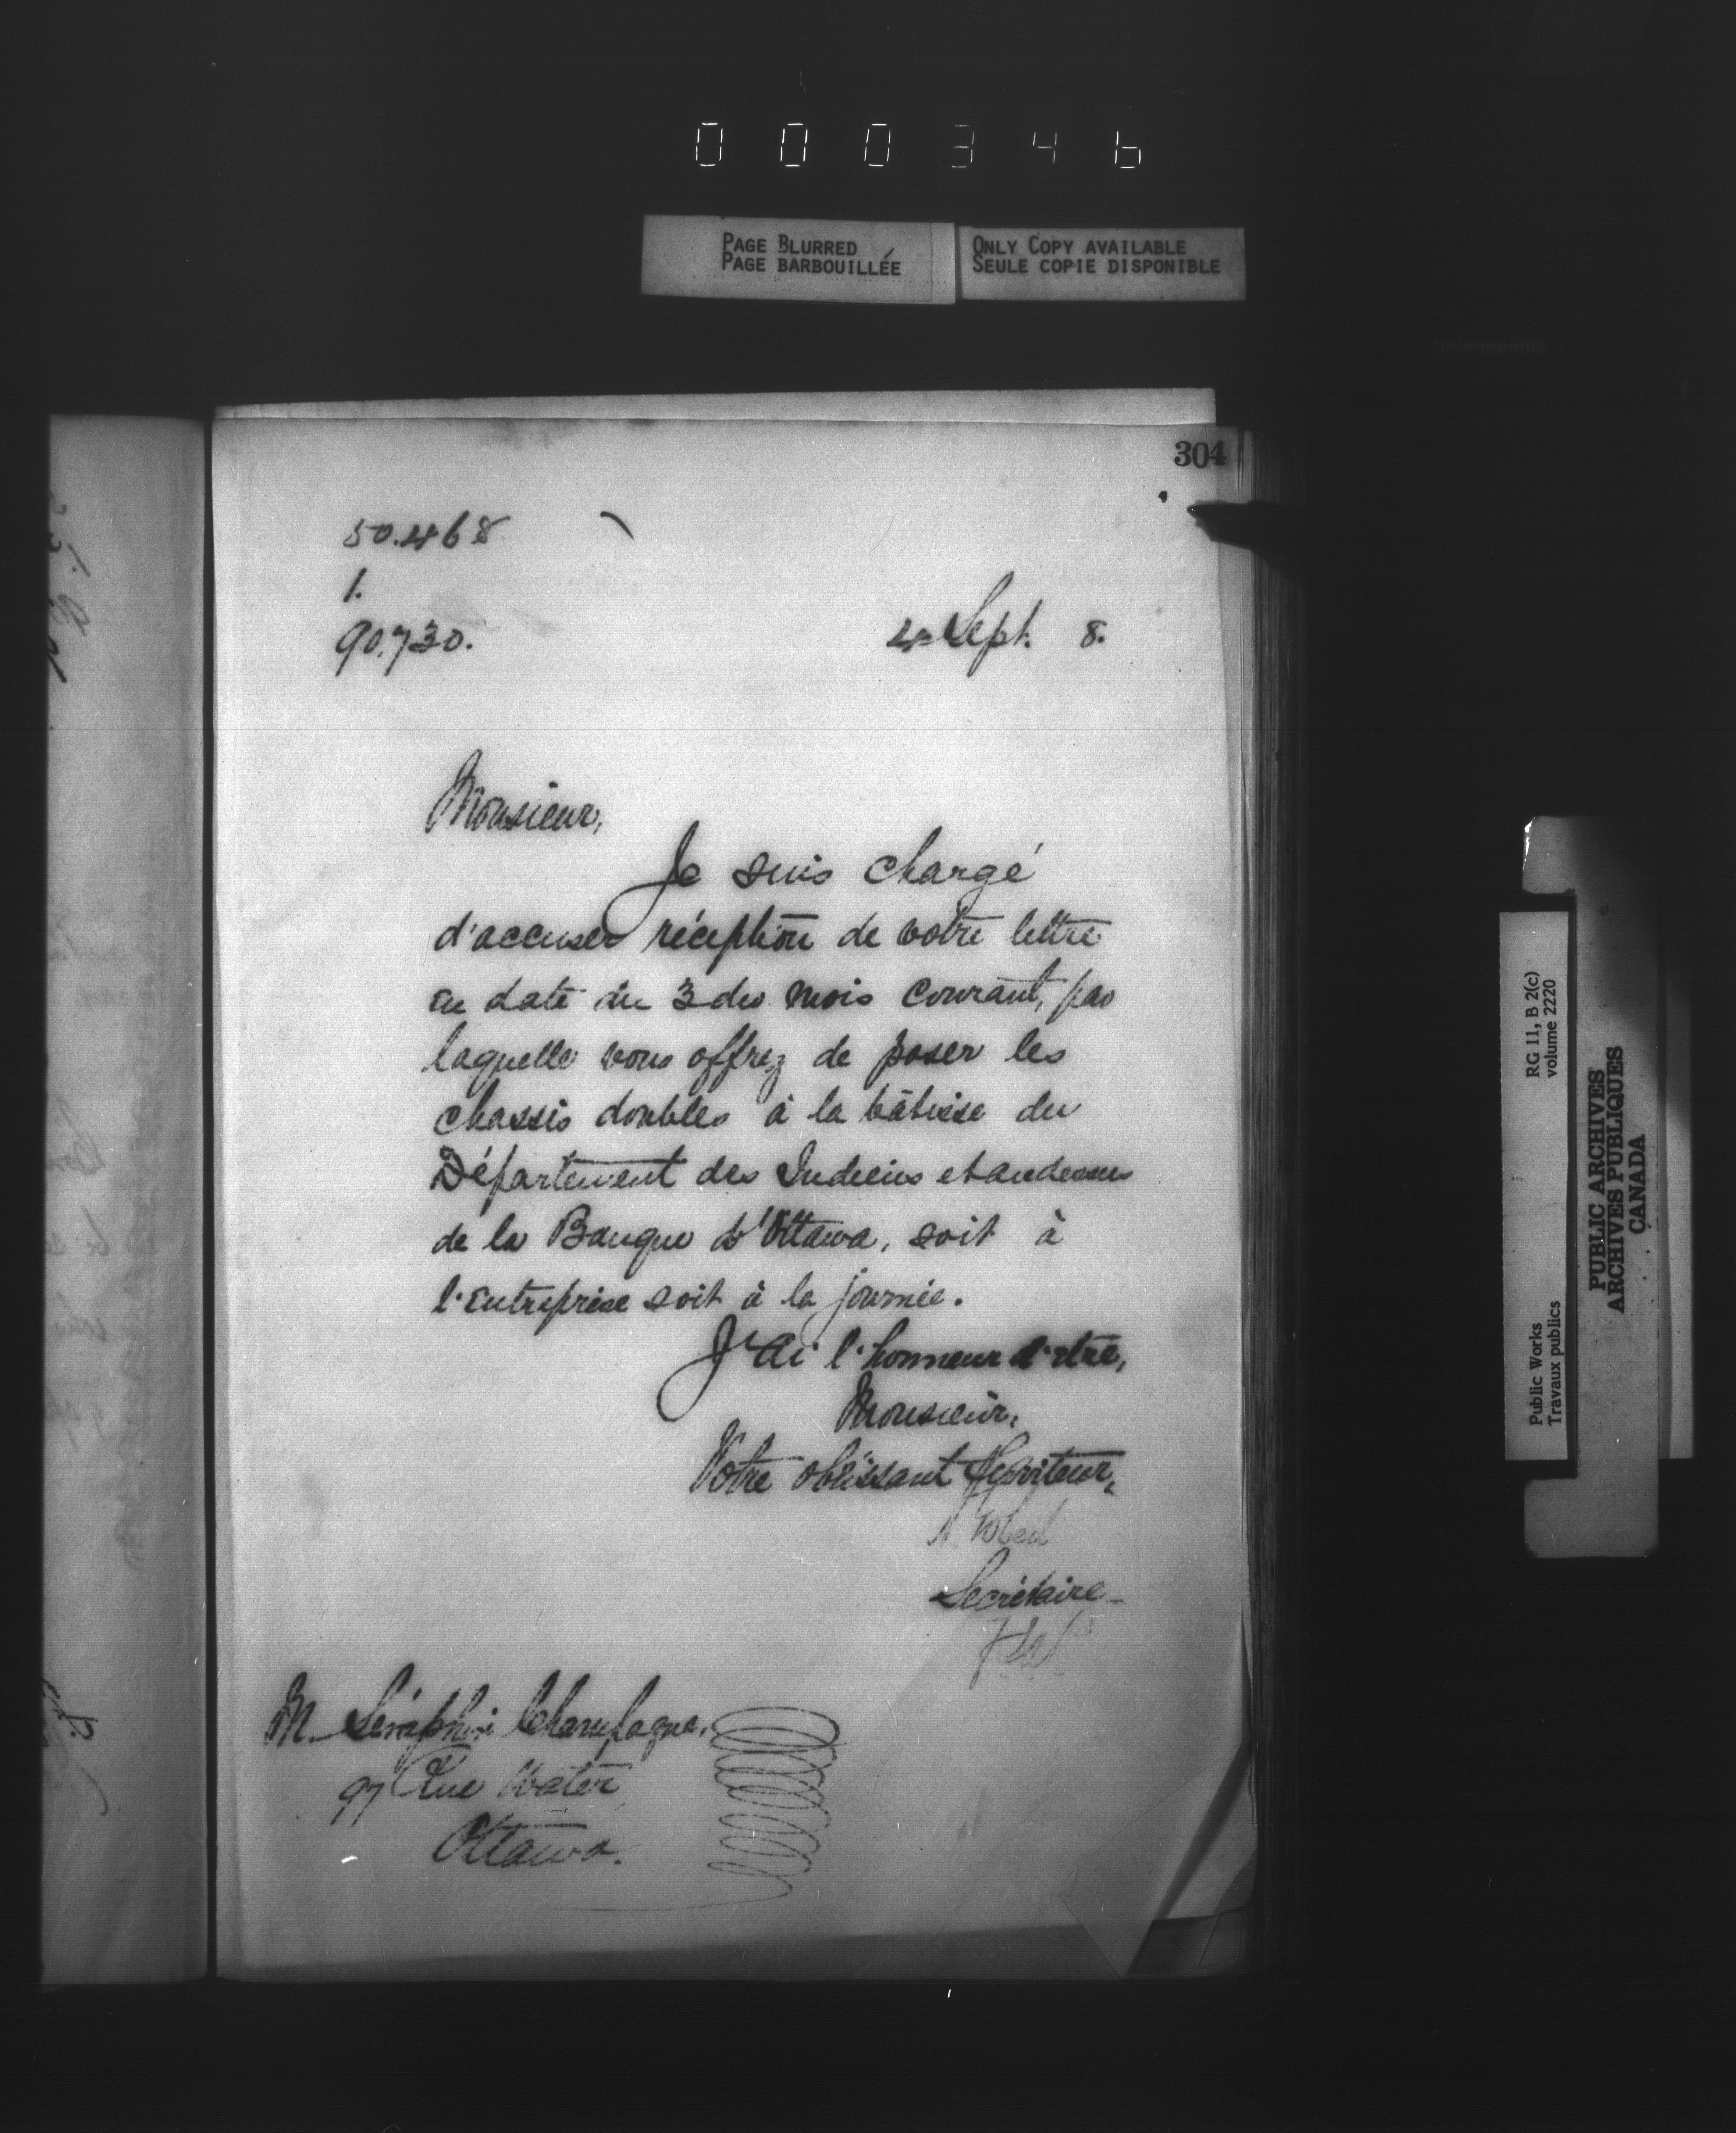 000346
PAGE BLURRED
PAGE BARBOUILLÉE
ONLY COPY AVAILABLE
SEULE COPIE DISPONIBLE
304
50.468
1.
90.730.
4 Sept. 8.
Monsieur,
Je suis chargé
d'accuser réception de votre lettre
en date du 3 du mois courant, par
laquelle vous offrez de poser les
chassis doubles à la bâtisse du
Département des Indiens et audessus
de la Banque d'Ottawa, soit à
l'entreprise soit à la journée.
J'ai l'honneur d'être,
Monsieur,
Votre obéissant Serviteur,
Secrétaire
M. Séraphin Champagne,
97 Rue Water
Ottawa.
RG 11, B 2(c)
volume 2220
Public Works
Travaux publics
PUBLIC ARCHIVES
ARCHIVES PUBLIQUES
CANADA